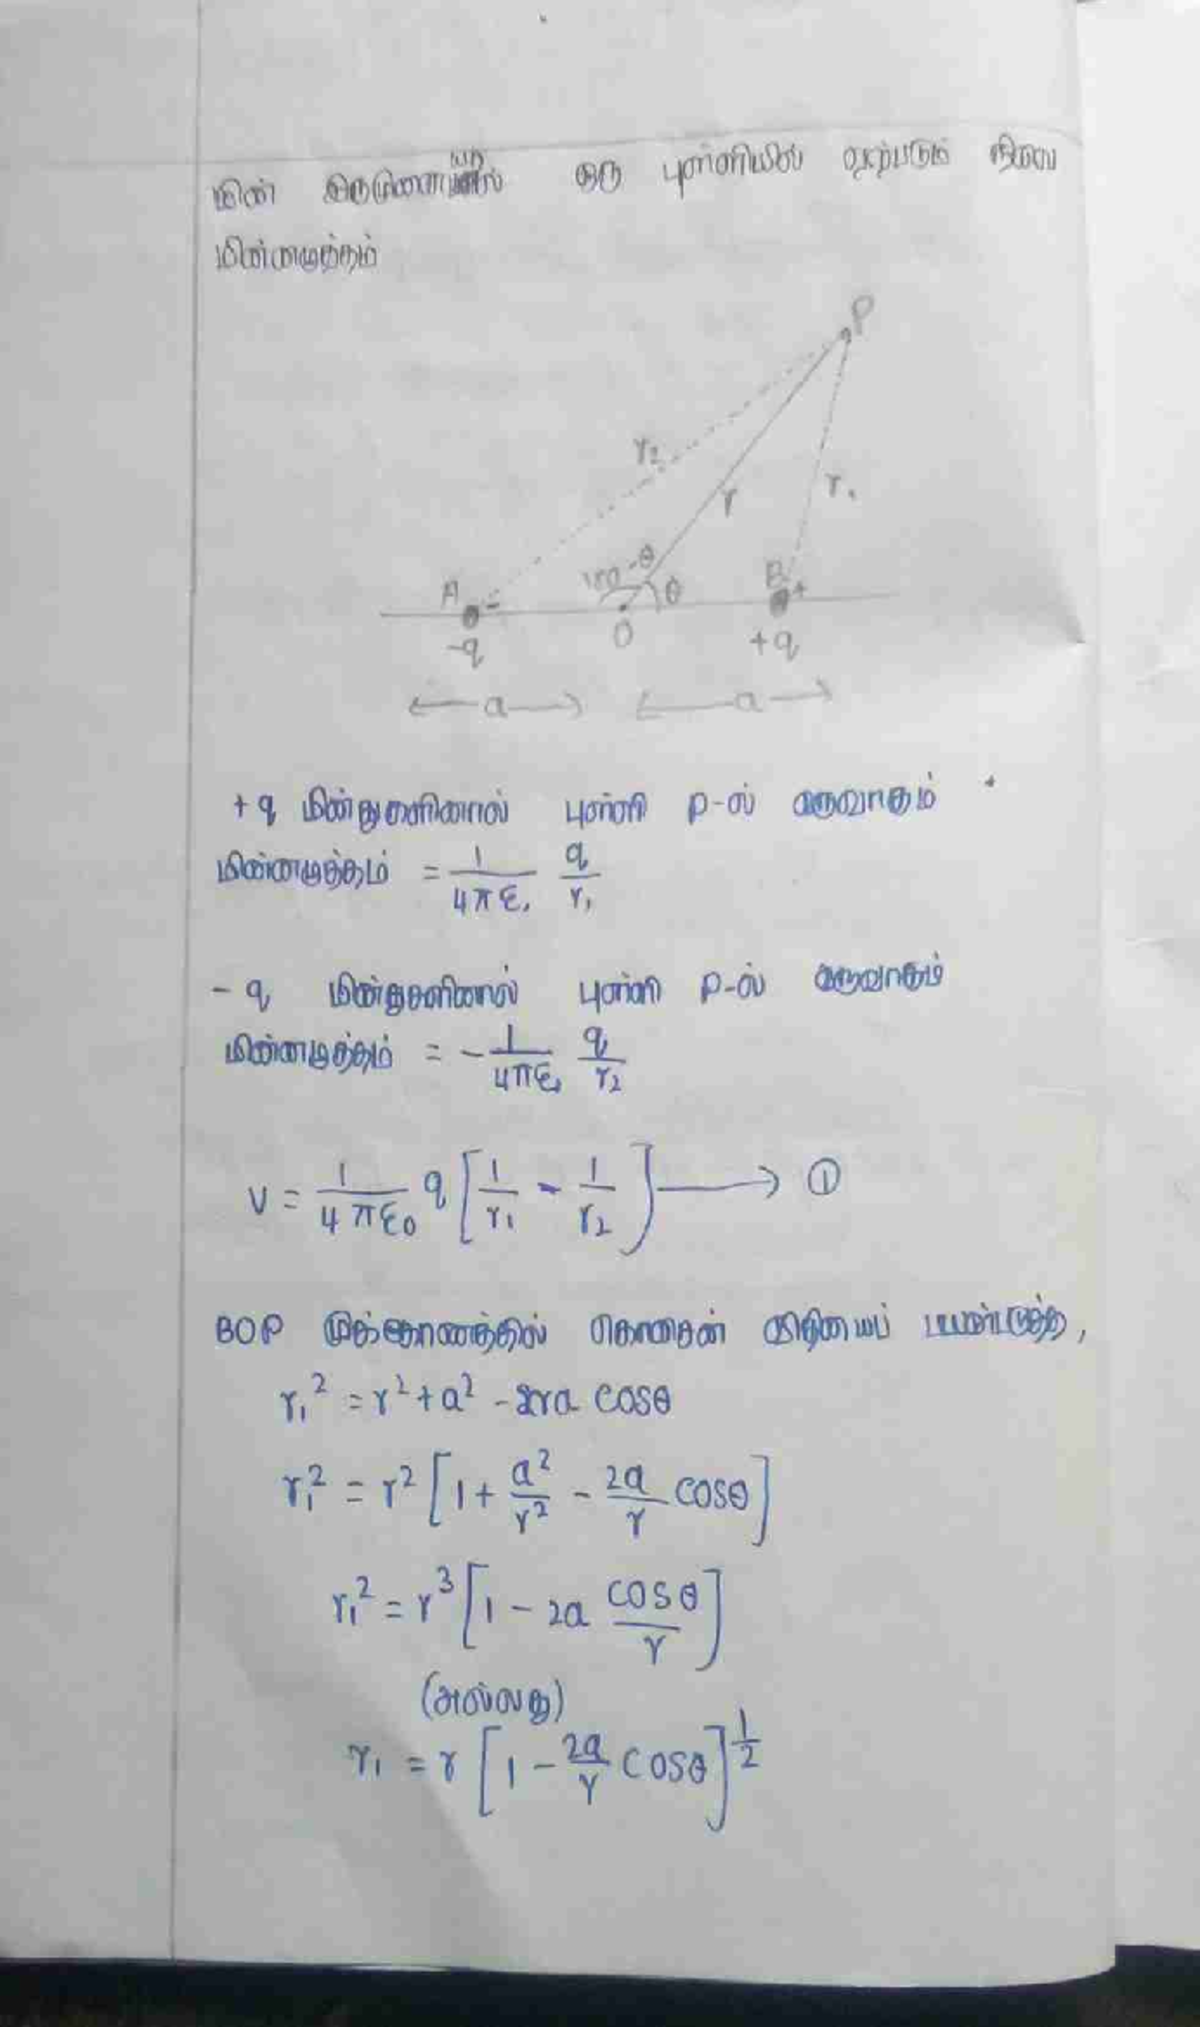 மின் இருமுனையால் ஒரு புள்ளியில் ஏற்படும் நிலை
மின்னழுத்தம்
P
r₂
r
r₁
180-θ
θ
A
B
-
+
-q
O
+q
a
a
+q மின்துகளினால் புள்ளி P-ல் உருவாகும்
மின்னழுத்தம் = 1/4πε₀ q/r₁
- q மின்துகளினால் புள்ளி P-ல் உருவாகும்
மின்னழுத்தம் = - 1/4πε₀ q/r₂
V = 1/4πε₀ q [1/r₁ - 1/r₂] ⟶ ①
BOP முக்கோணத்தில் கொசைன் விதியைப் பயன்படுத்த,
r₁² = r² + a² - 2ra cosθ
r₁² = r² [1 + a²/r² - 2a/r cosθ]
r₁² = r³ [1 - 2a cosθ/r]
(அல்லது)
r₁ = r [1 - 2a/r cosθ]^1/2